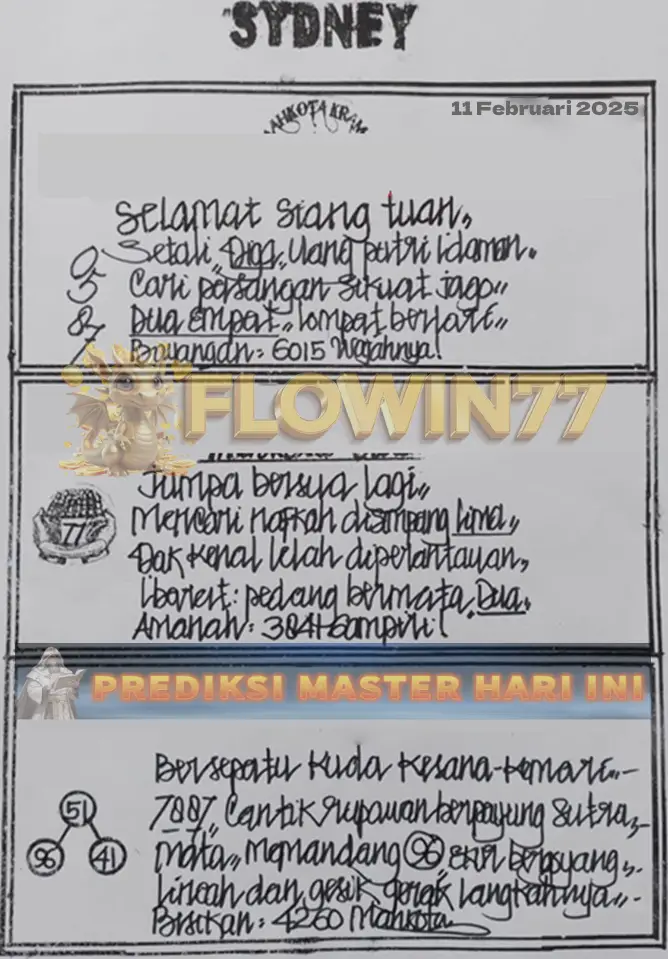 "SYDNEY
11 Februari 2025
Selamat siang tuan,,
0 Setali "Diga,, Uang putri Idaman.
5 Cari pasangan sikuat jago,,
8 Dua empat,, lompat berlari,,
1 Bayangan: 6015 Wejahnya!
FLOWIN77
Jumpa bersua lagi,,
77 Mencari nafkah disimpang lima,,
Dak kenal lelah diperantauan,,
Ibarat: pedang bermata Dua,,
Amanah: 3841 Hampiri!
PREDIKSI MASTER HARI INI
Bersepatu Kuda kesana-kemari,,-
51 7007,, Cantik rupawan berpayung Sutra,,-
96 41 mata,, Memandang 96,, ekor bergoyang,,
Lincah dan gesit gerak langkahnya,,-
Bisikan: 4260 Mahkota